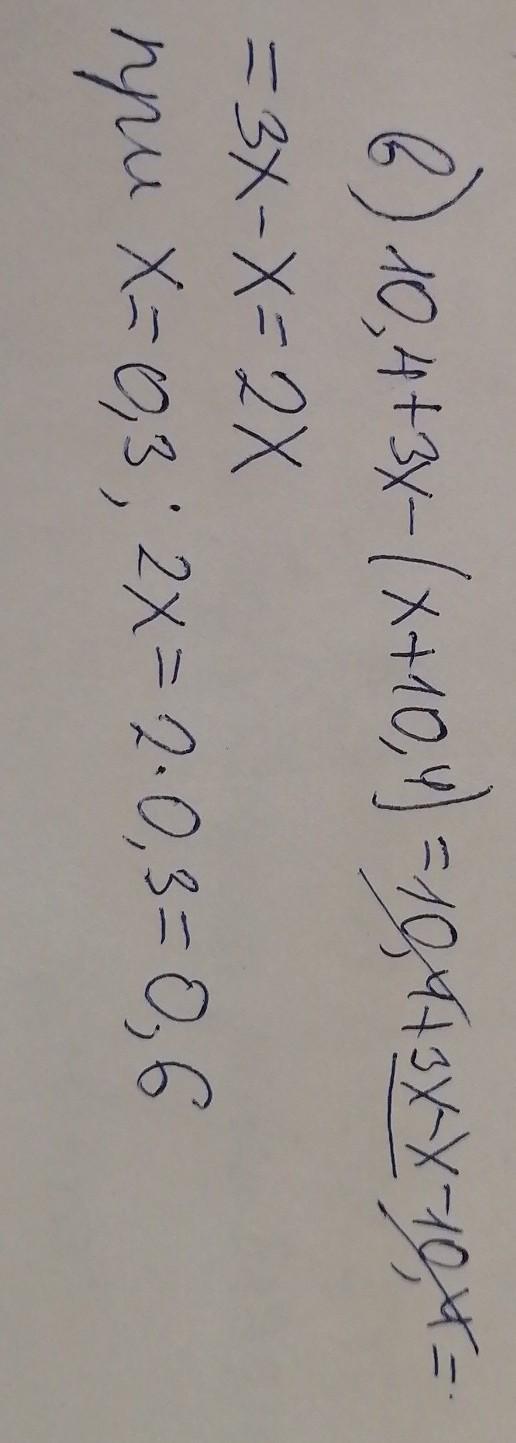 в) 10,4+3x-(x+10,4)=10,4+3x-x-10,4=
=3x-x=2x
при x=0,3; 2x=2·0,3=0,6